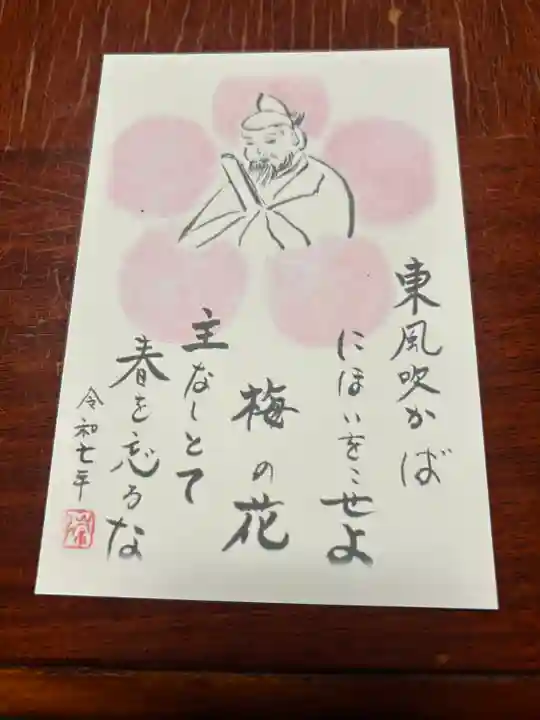 東風吹かば
にほいをこせよ
梅の花
主なしとて
春を忘るな
令和七年